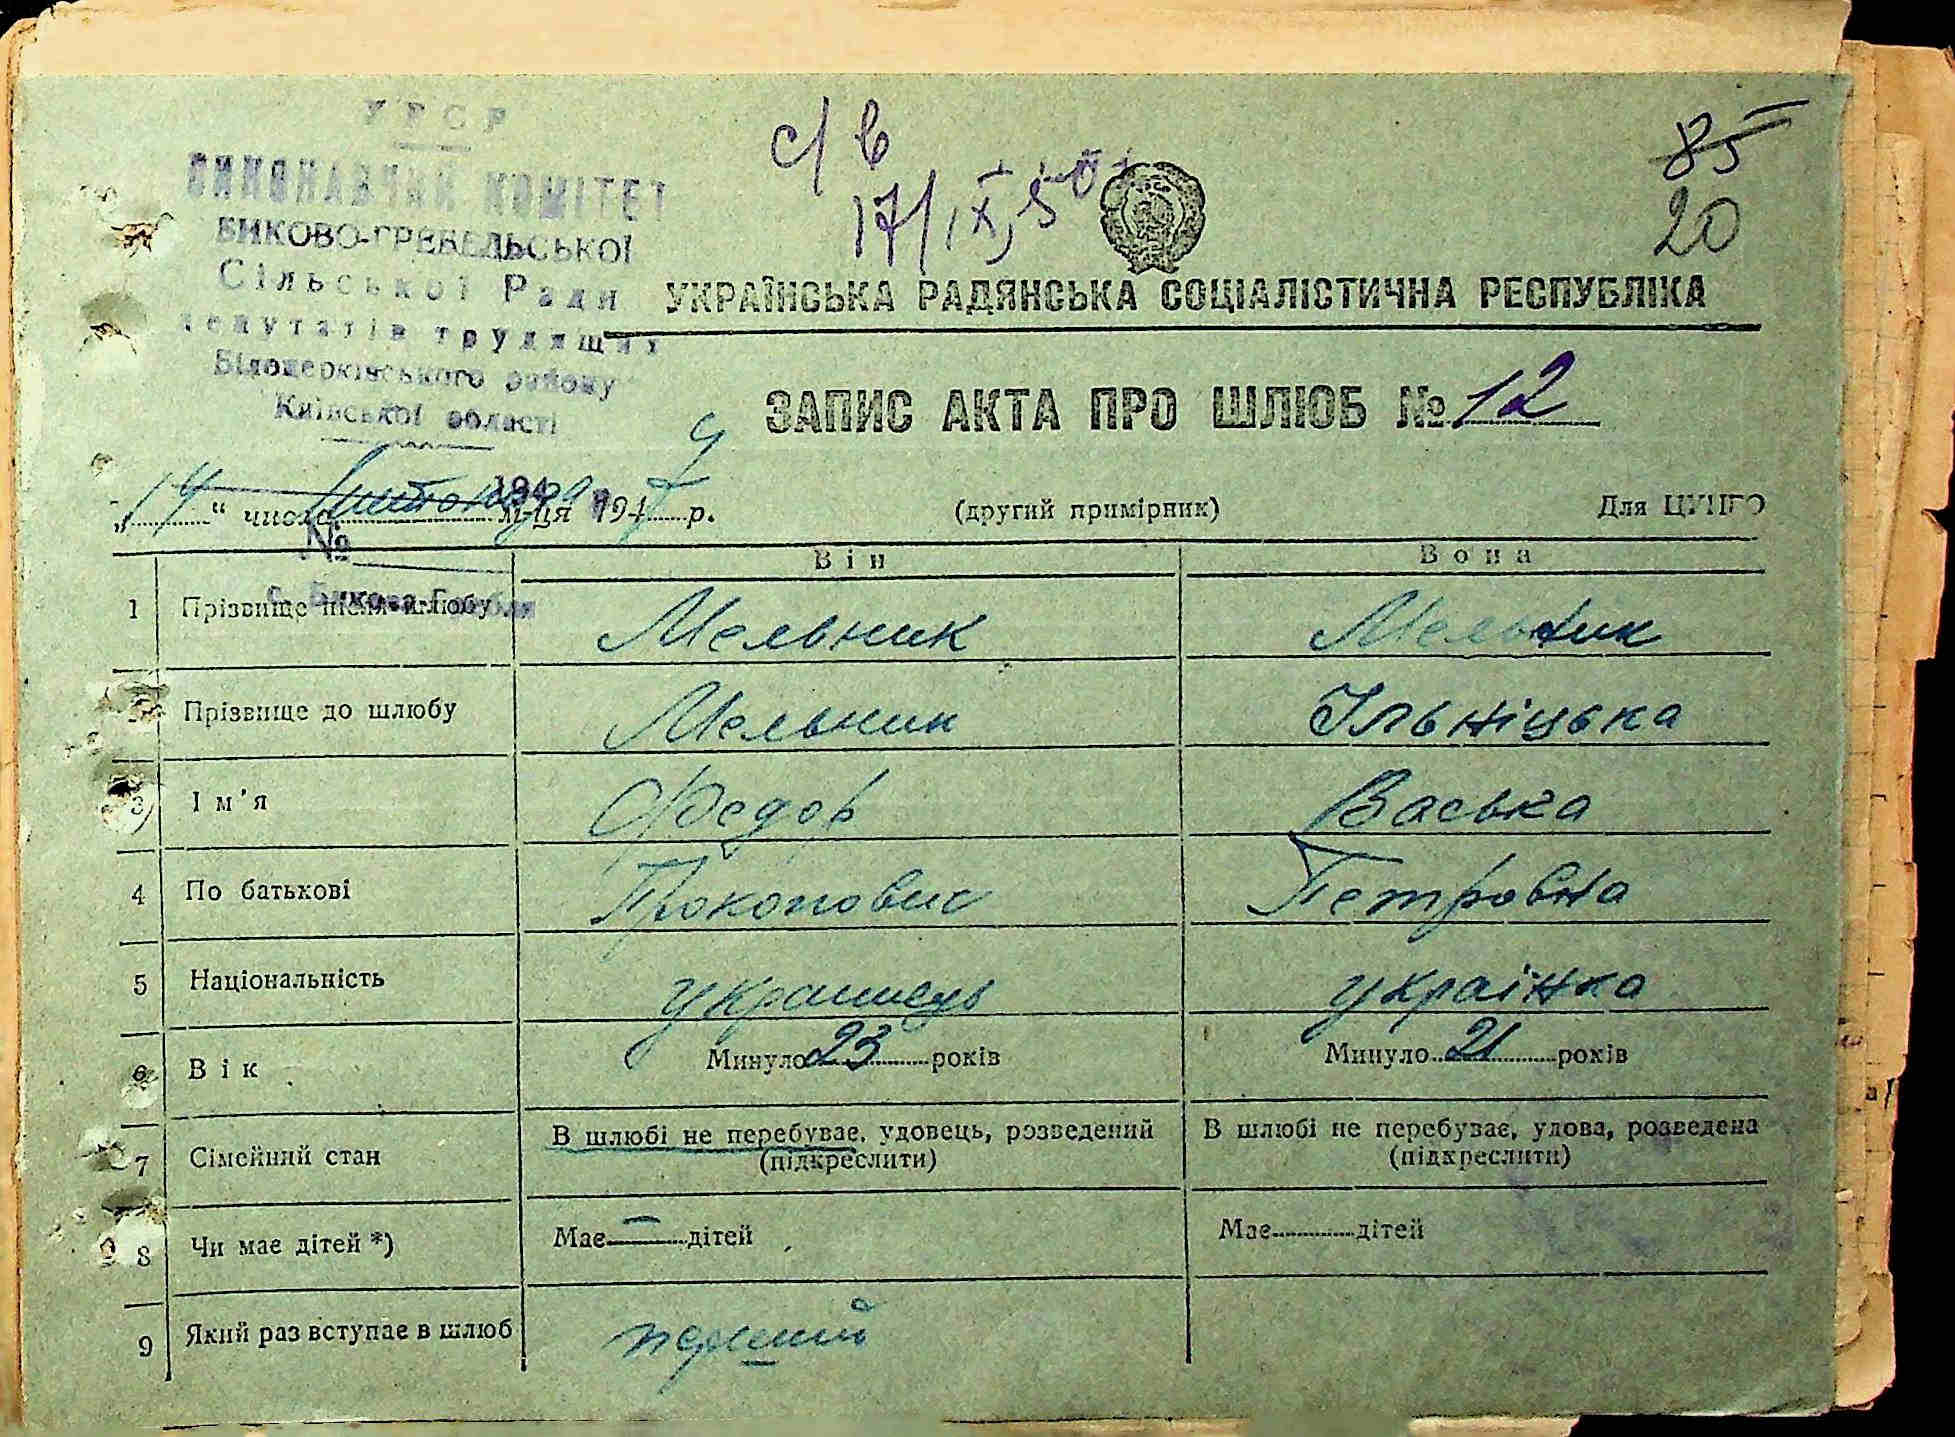 УРСР
ВИКОНАВЧИЙ КОМІТЕТ
БИКОВО-ГРЕБЕЛЬСЬКОЇ
Сільської Ради
депутатів трудящих
Білоцерківського району
Київської області
с/в
17/IX, 50
85
20
УКРАЇНСЬКА РАДЯНСЬКА СОЦІАЛІСТИЧНА РЕСПУБЛІКА
ЗАПИС АКТА ПРО ШЛЮБ № 12
194
„14“ числа листопада м-ця 1947 р.
(другий примірник)
Для ЦУНГО
№
с. Бикова-Гребля
Він
Вона
1 Прізвище після шлюбу Мельник Мельник
2 Прізвище до шлюбу Мельник Ільніцька
3 Ім'я Федор Васька
4 По батькові Прокопович Петровна
5 Національність українець українка
6 Вік Минуло 23 років Минуло 21 років
7 Сімейний стан В шлюбі не перебуває, удовець, розведений (підкреслити) В шлюбі не перебуває, удова, розведена (підкреслити)
8 Чи має дітей *) Має — дітей Має дітей
9 Який раз вступає в шлюб перший